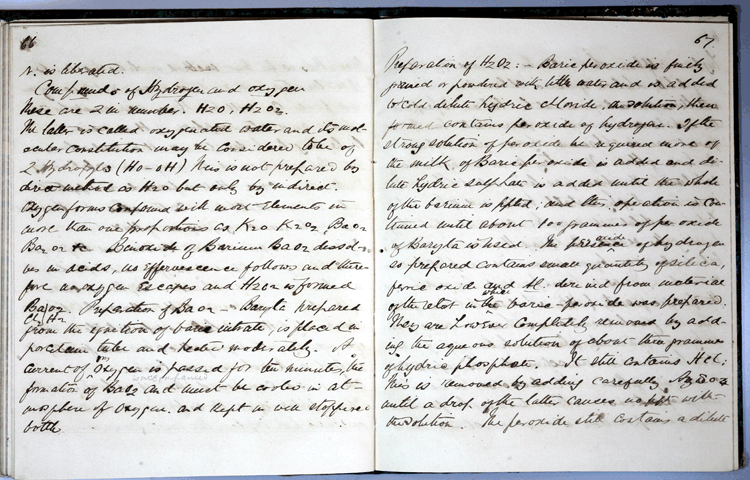 66
r. is liberated.
Compounds of Hydrogen and oxygen
These are 2 in number. H2O, H2O2.
The latter is called oxygenated water and its mol-
ecular constitution may be considered to be of
2 Hydroxyls (HO-OH) This is not prepared by
direct method as H2O but only by indirect.
Oxygen forms compound with most elements in
more than one proportions as K2O K2O2 BaO2
&c Binoxide of Barium BaO2 dissol-
ves in acids, no effervescence follows and there-
fore no oxygen escapes and H2O2 is formed
Preparation of BaO2 - Baryta prepared
from the ignition of baric nitrate, is placed in
porcelain tube and heated moderately. A
current of Oxygen is passed for ten minutes, the
formation of BaO2 and must be cooled in at-
mosphere of Oxygen. and kept in well stoppered
bottle.
67
Preparation of H2O2: - Baric peroxide is finely
powdered with little water and is added
to cold dilute hydric chloride, a solution, then
formed contains peroxide of hydrogen. If the
strong solution of peroxide be required more of
the milk of Baric peroxide is added and di-
lute hydric sulphate is added until the whole
of the barium is ppted; and this operation is con-
tinued until about 10 grammes of peroxide
of Baryta is used. The peroxide of hydrogen
so prepared contains small quantity of silica,
ferric oxide and Al. derived from material
of the in which the baric-peroxide was prepared.
They are however completely removed by add-
ing the aqueous solution of about three grammes
of hydric phosphate. It still contains HCl;
This is removed by adding carefully
until a drop of the latter causes no ppt with
the solution. The peroxide still contains a dilute